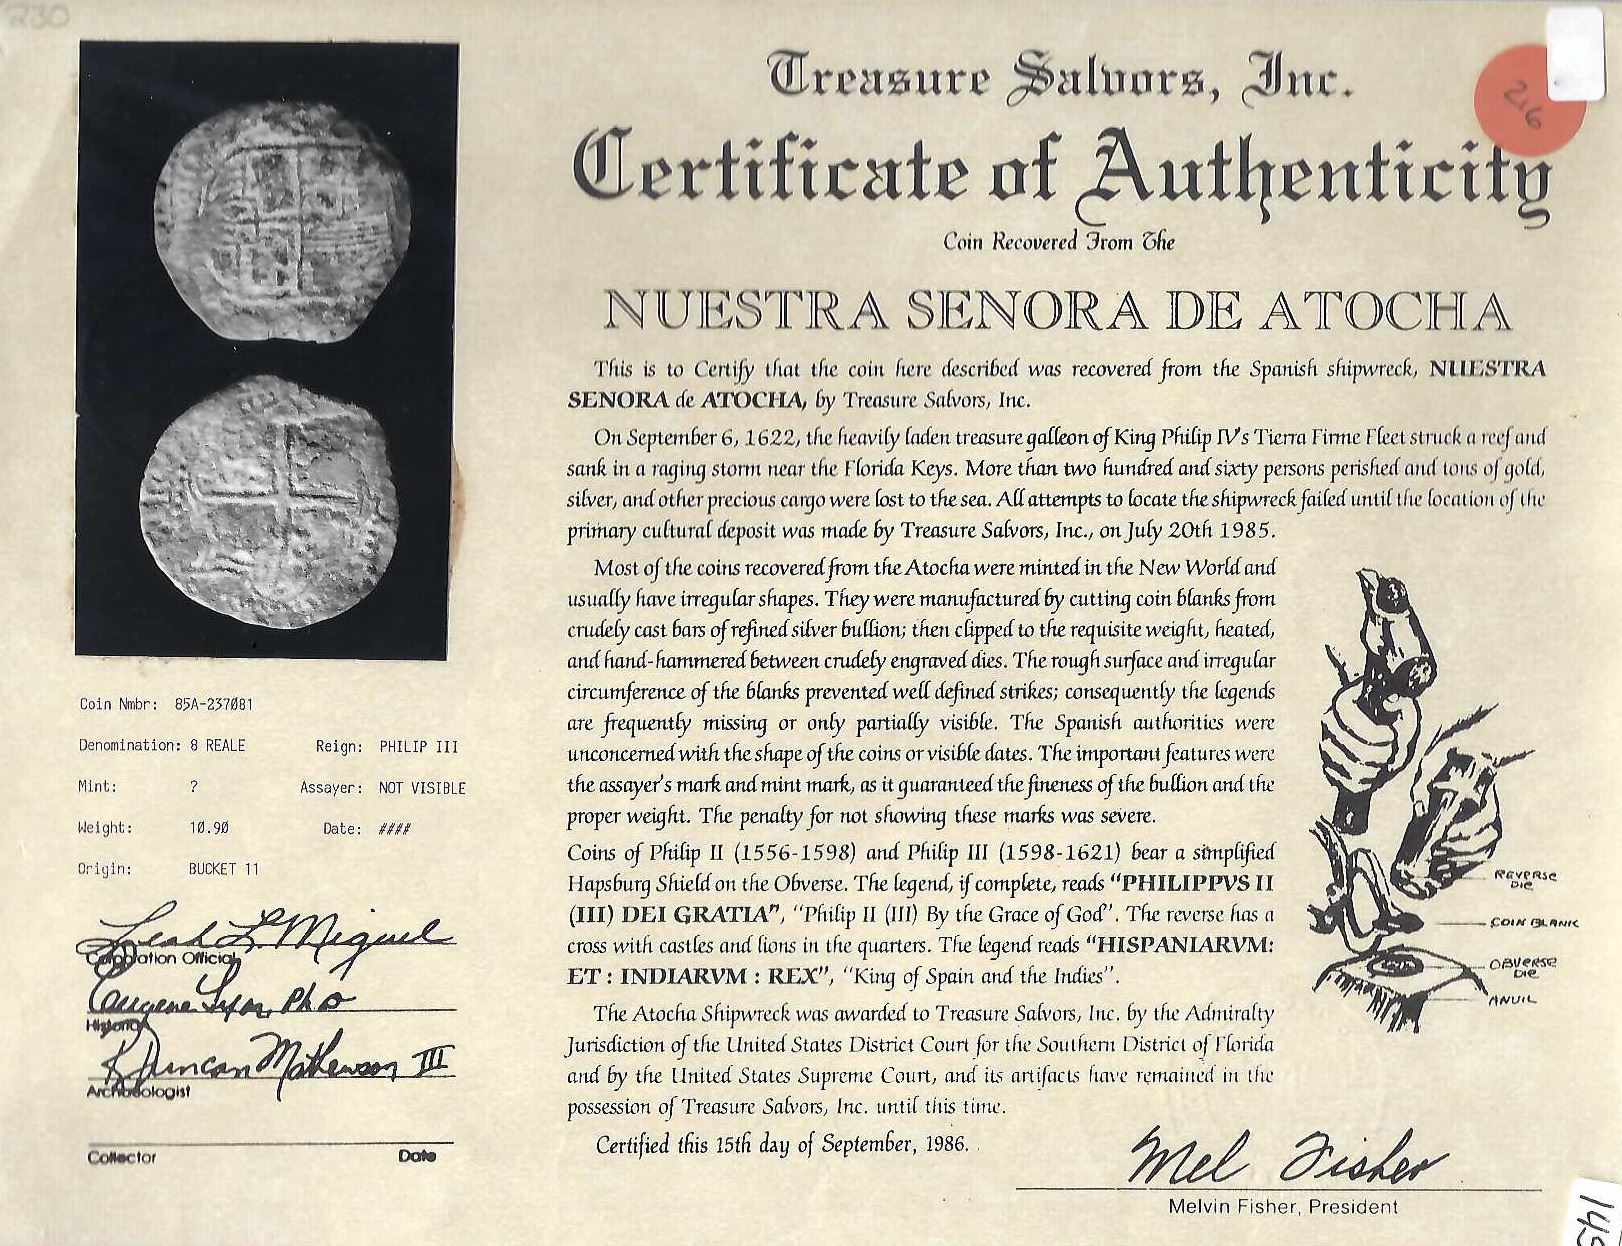 230
Treasure Salvors, Inc.
216
Certificate of Authenticity
Coin Recovered From The
NUESTRA SENORA DE ATOCHA
This is to Certify that the coin here described was recovered from the Spanish shipwreck, NUESTRA
SENORA de ATOCHA, by Treasure Salvors, Inc.
On September 6, 1622, the heavily laden treasure galleon of King Philip IV's Tierra Firme Fleet struck a reef and
sank in a raging storm near the Florida Keys. More than two hundred and sixty persons perished and tons of gold,
silver, and other precious cargo were lost to the sea. All attempts to locate the shipwreck failed until the location of the
primary cultural deposit was made by Treasure Salvors, Inc., on July 20th 1985.
Most of the coins recovered from the Atocha were minted in the New World and
usually have irregular shapes. They were manufactured by cutting coin blanks from
crudely cast bars of refined silver bullion; then clipped to the requisite weight, heated,
and hand-hammered between crudely engraved dies. The rough surface and irregular
circumference of the blanks prevented well defined strikes; consequently the legends
are frequently missing or only partially visible. The Spanish authorities were
unconcerned with the shape of the coins or visible dates. The important features were
the assayer's mark and mint mark, as it guaranteed the fineness of the bullion and the
proper weight. The penalty for not showing these marks was severe.
Coins of Philip II (1556-1598) and Philip III (1598-1621) bear a simplified
Hapsburg Shield on the Obverse. The legend, if complete, reads "PHILIPPVS II
(III) DEI GRATIA", "Philip II (III) By the Grace of God". The reverse has a
cross with castles and lions in the quarters. The legend reads "HISPANIARVM:
ET : INDIARVM : REX", "King of Spain and the Indies".
The Atocha Shipwreck was awarded to Treasure Salvors, Inc. by the Admiralty
Jurisdiction of the United States District Court for the Southern District of Florida
and by the United States Supreme Court, and its artifacts have remained in the
possession of Treasure Salvors, Inc. until this time.
Certified this 15th day of September, 1986.
Mel Fisher
Melvin Fisher, President
REVERSE
DIE
COIN BLANK
OBVERSE
DIE
ANVIL
Coin Nmbr: 85A-237081
Denomination: 8 REALE Reign: PHILIP III
Mint: ? Assayer: NOT VISIBLE
Weight: 10.90 Date: ####
Origin: BUCKET 11
Leah L. Miguel
Corporation Official
Eugene Lyon, Ph D
Historian
R Duncan Mathewson III
Archaeologist
Collector Date
145